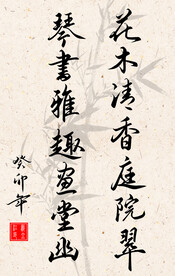 花木清香庭院翠
琴書雅趣画堂幽
癸卯年